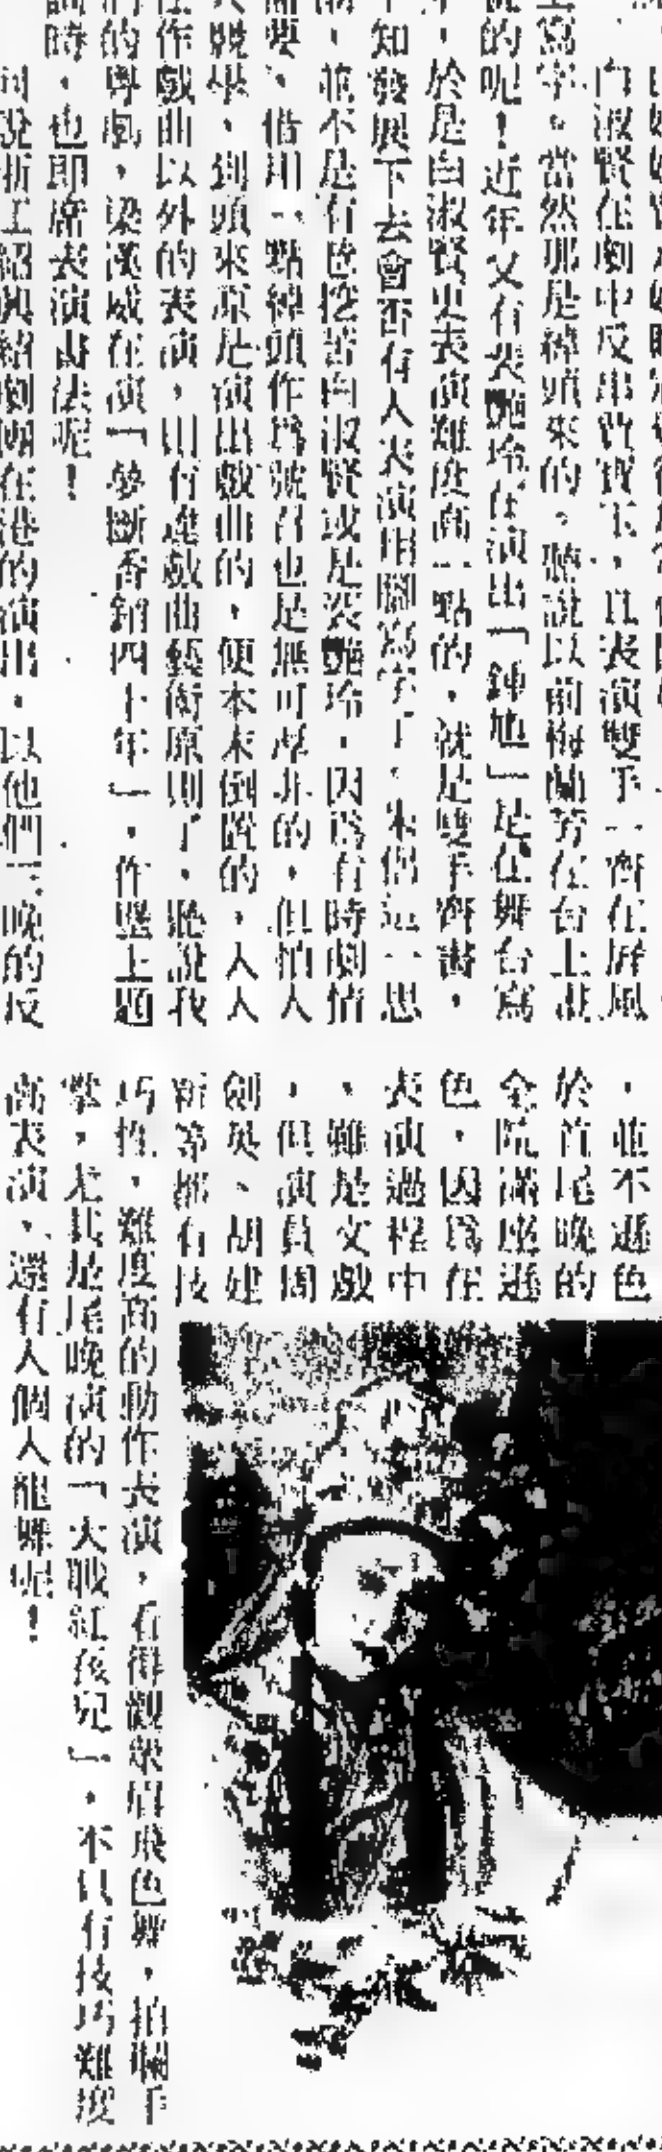 白淑賢在劇中反串賈寶玉，且表演雙手一齊在屏風
上寫字。當然那是綽頭來的。聽說以前梅蘭芳在台上畫
的呢！近年又有裴艷玲在演出「鍾馗」是在舞台寫
，於是白淑賢更表演難度高一點的，就是雙手齊書，
知發展下去會否有人表演用腳寫字了。朱侶這一思
，並不是有意挖苦白淑賢或是裴艷玲，因爲有時劇情
需要，借用一點綽頭作爲號召也是無可厚非的，但怕人
人競學，到頭來原是演出戲曲的，便本末倒置的，人人
作戲曲以外的表演，則有違戲曲藝術原則了，聽說我
的粵劇，梁漢威在演「夢斷香銷四十年」，作壁上題
詞時，也即席表演書法呢！
浙江紹興紹劇團在港的演出，以他們三晚的反
，並不遜色
於首尾晚的
全院滿座遜
色，因爲在
表演過程中
，雖是文戲
，但演員周
劍英、胡建
新等都有技
巧性，難度高的動作表演，看得觀衆眉飛色舞，拍爛手
掌，尤其是尾晚演的「大戰紅孩兒」，不只有技巧難度
高表演，還有人個人龍舞呢！